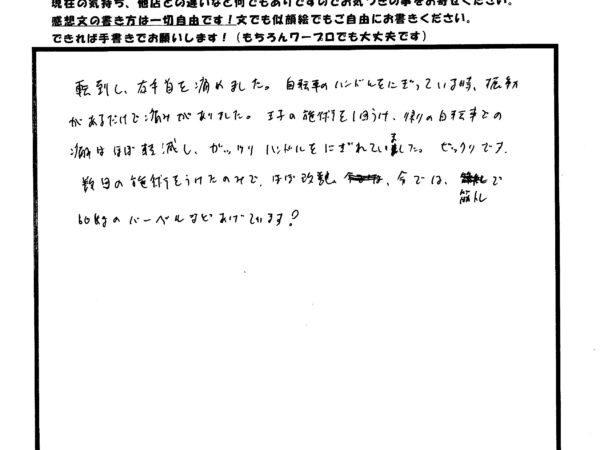 現在の気持ち、他店との違いなど何でもありですのでお気づきの事をお寄せください。
感想文の書き方は一切自由です！文でも似顔絵でもご自由にお書きください。
できれば手書きでお願いします！（もちろんワープロでも大丈夫です）
転到し、左手首を痛めました。自転車のハンドルをにぎっている時、振動
があるだけで痛みがありました。の施術を1回うけ、帰りの自転車での
痛みはほぼ軽減し、ガッツリハンドルをにぎれていました。ビックリです。
数回の施術をうけたのみで、ほぼ改善、今では、筋トレで
60kgのバーベルなどあげています？